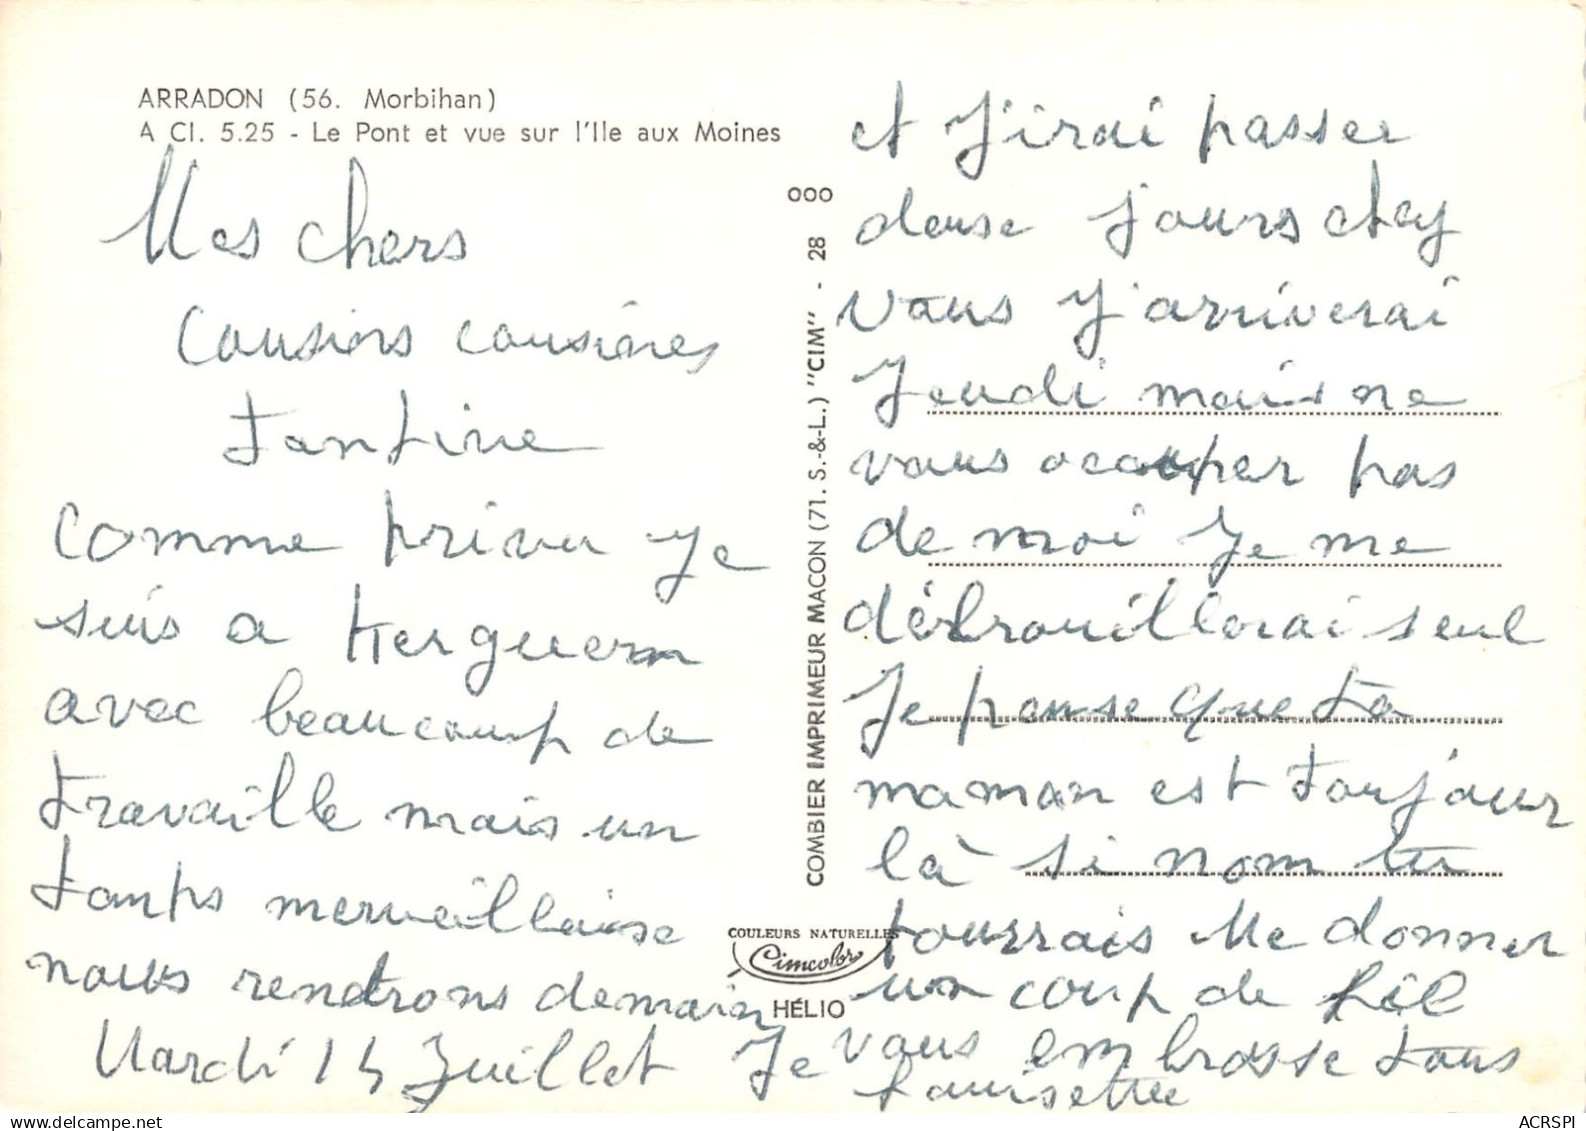 ARRADON (56. Morbihan)
A Cl. 5.25 - Le Pont et vue sur l'Ile aux Moines
Mes chers
cousins cousines
Tantine
comme prévu Je
suis a Kerguern
avec beaucoup de
travaille mais un
tamps merveillaise
nous rendtrons demain
Mardi 14 Juillet
et J'irai passer
deuse jours chey
vous J'arriverai
Jeudi mais ne
vous ocauper pas
de moi Je me
débrouillerai seul
Je panse que ta
maman est toujour
là si nom tu
pourrais Me donner
un coup de fil
Je vous embrasse tous
Louisette
ooo
COMBIER IMPRIMEUR MACON (71. S.-&-L.) "CIM" - 28
COULEURS NATURELLES
Cimcolor
HÉLIO
ACRSPI